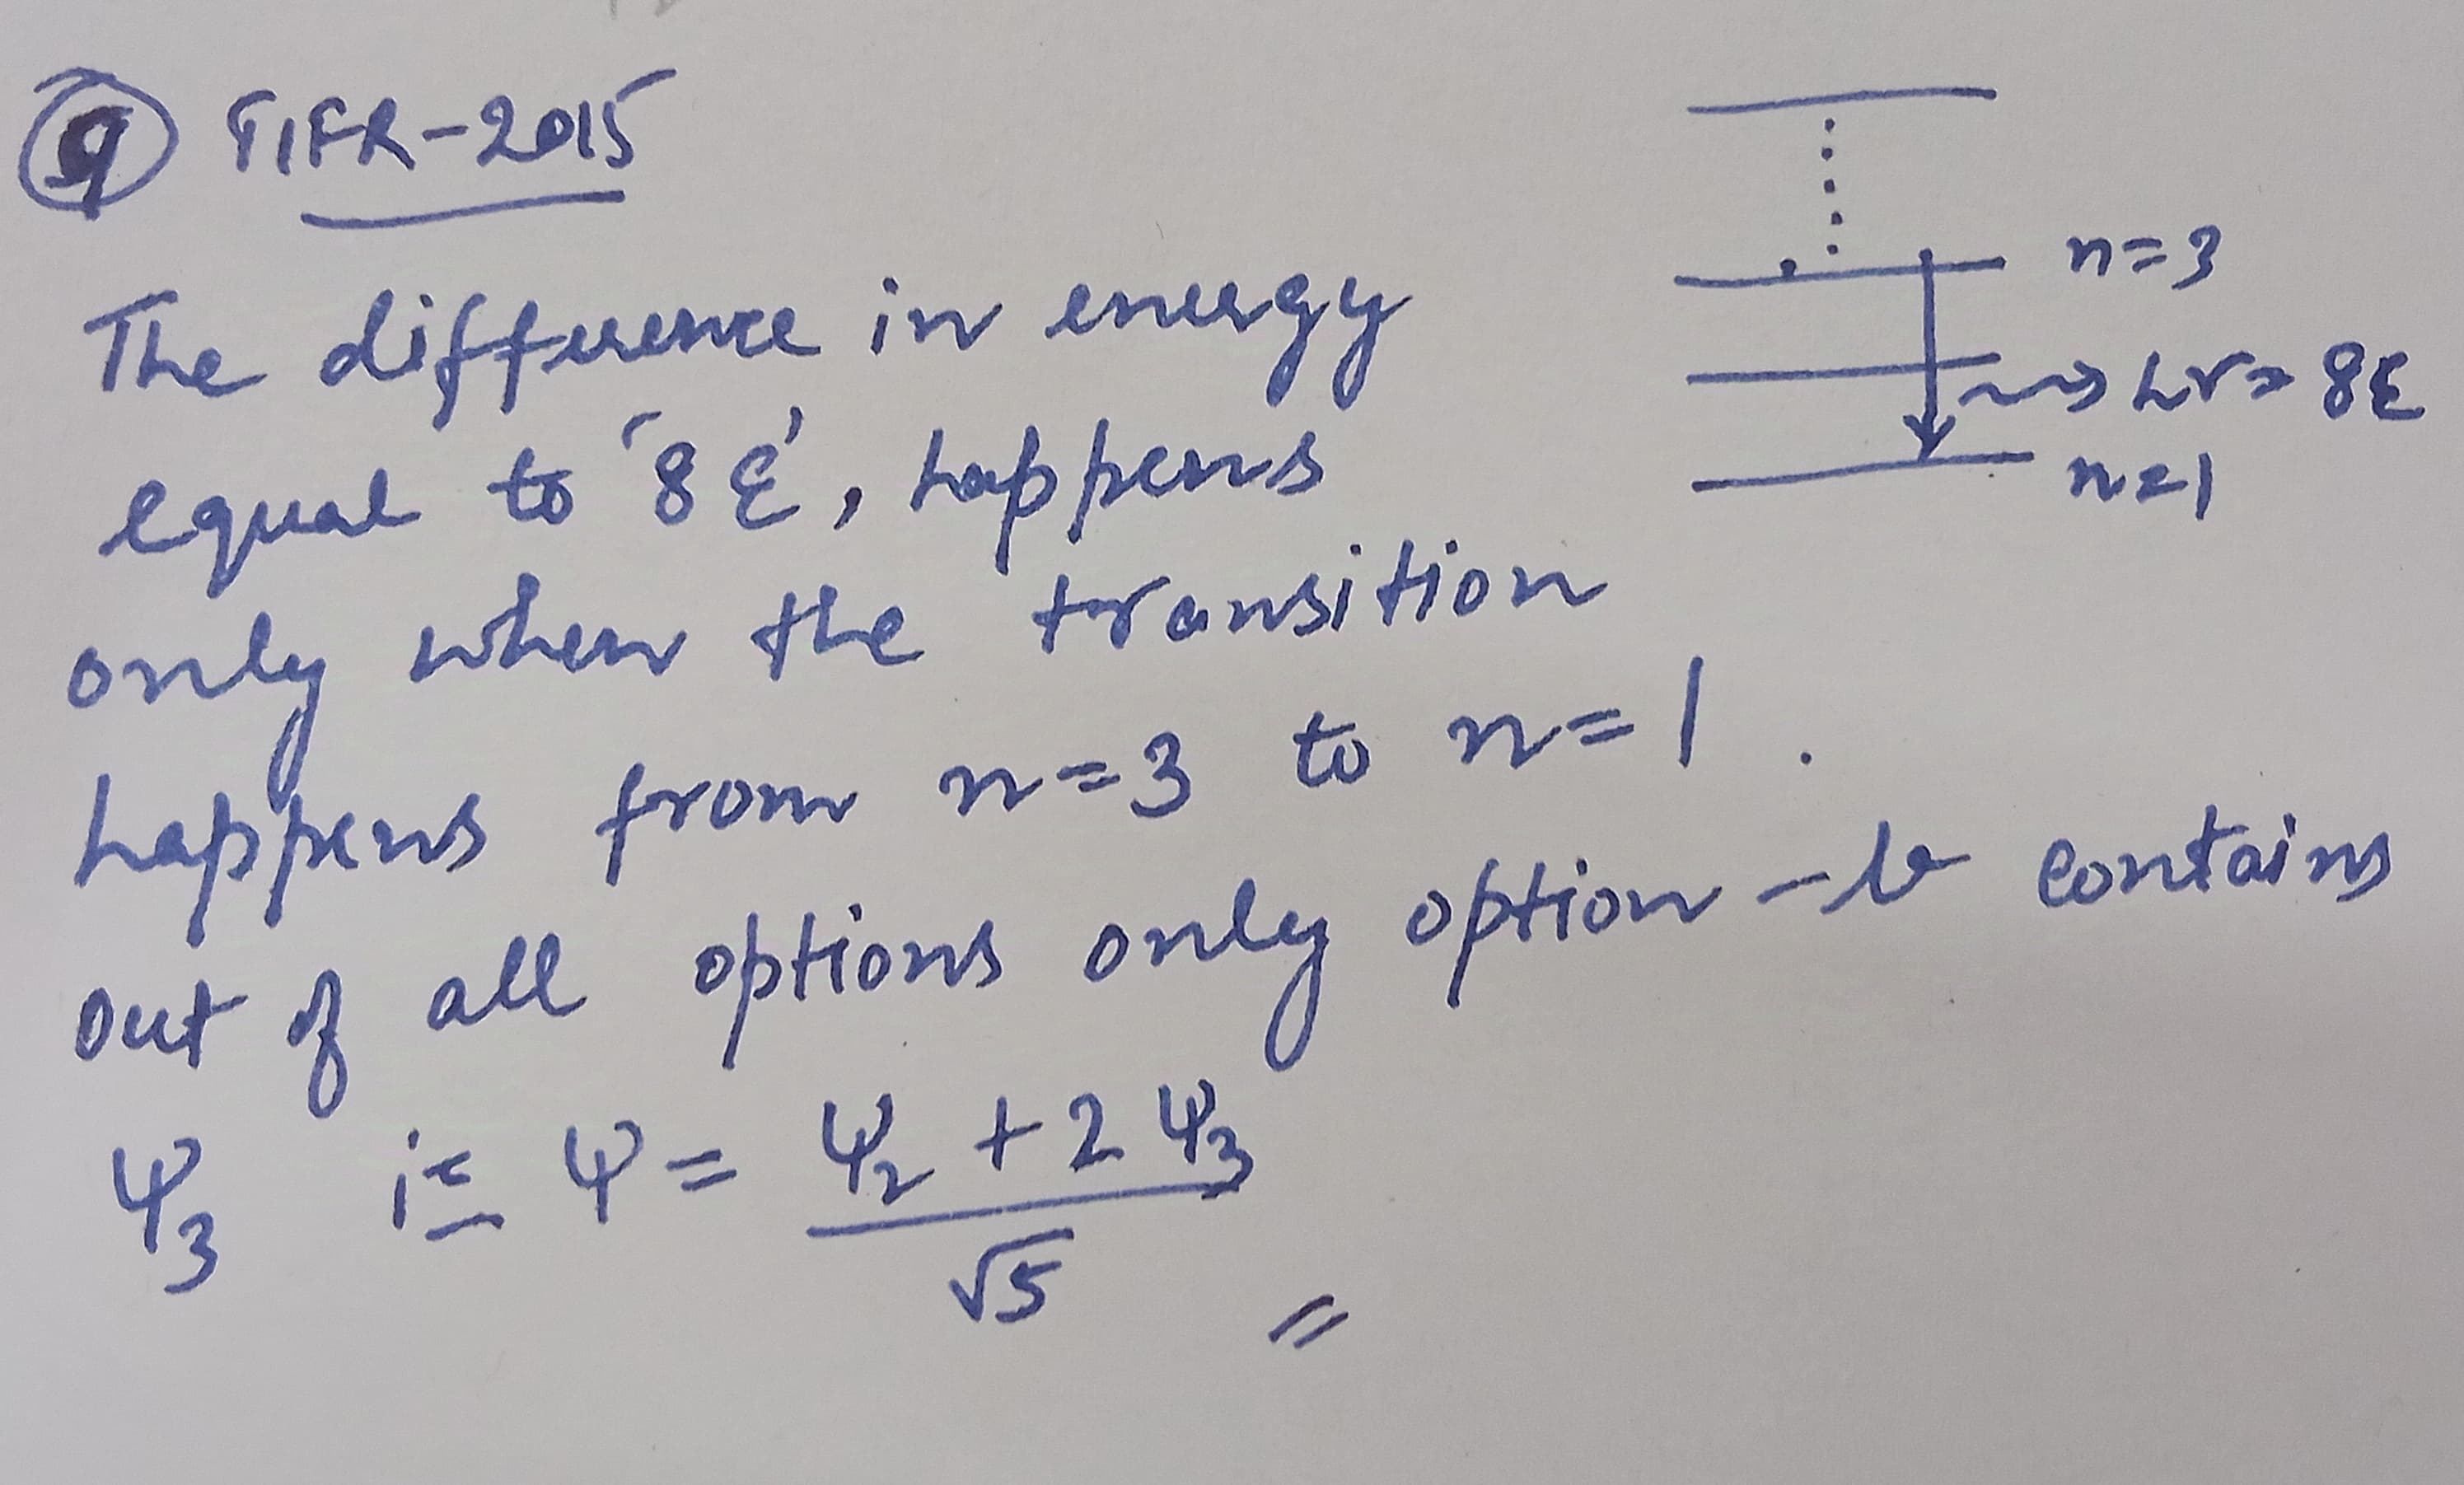 9 TIFR-2015
n=3
The difference in energy
hν = 8ε
equal to '8ε', happens
n=1
only when the transition
happens from n=3 to n=1.
out of all options only option-b contains
ψ₃ ie ψ = (ψ₂ + 2ψ₃)/√5